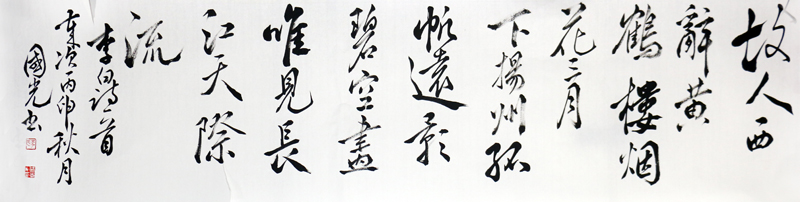 故人西
辭黄
鶴樓烟
花三月
下揚州孤
帆遠影
碧空盡
唯見長
江天際
流
李白詩一首
歲次丙申秋月
國光书